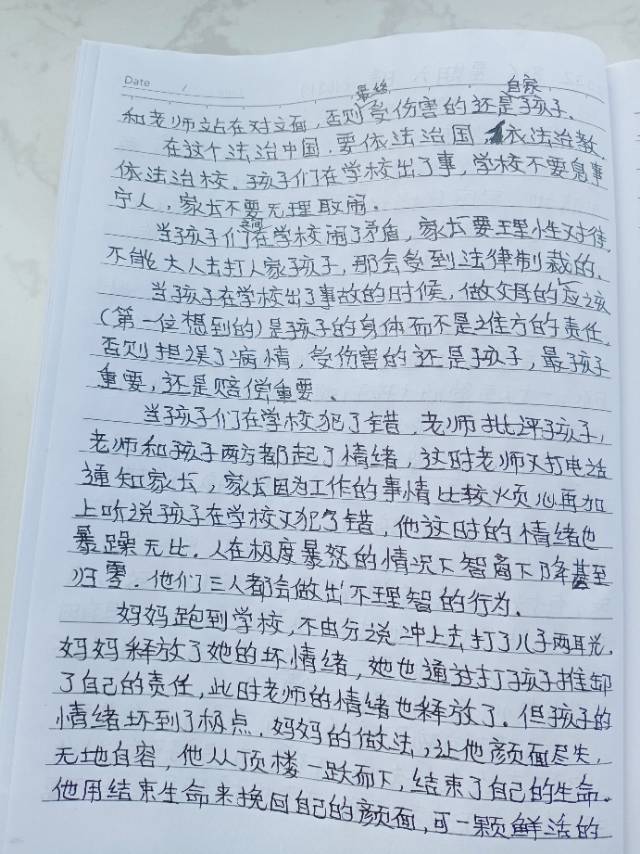 Date
最终 自家
和老师站在对立面，否则受伤害的还是孩子.
在这个法治中国，要依法治国，依法治教.
依法治校，孩子们在学校出了事，学校不要息事
宁人，家长不要无理取闹。
之间
当孩子们在学校闹了矛盾，家长要理性对待
不能大人去打人家孩子，那会受到法律制裁的.
当孩子在学校出了事故的时候，做父母的应该
(第一位想到的)是孩子的身体而不是谁方的责任，
否则担误了病情，受伤害的还是孩子，是孩子
重要，还是赔偿重要、
当孩子们在学校犯了错，老师批评孩子，
老师和孩子两方都起了情绪，这时老师又打电话
通知家长，家长因为工作的事情比较烦心再加
上听说孩子在学校又犯了错，他这时的情绪也
暴躁无比.人在极度暴怒的情况下智商下降甚至
归零.他们三人都会做出不理智的行为.
妈妈跑到学校，不由分说冲上去打了儿子两耳光，
妈妈释放了她的坏情绪，她也通过打孩子推卸
了自己的责任，此时老师的情绪也释放了。但孩子的
情绪坏到了极点.妈妈的做法，让他颜面尽失，
无地自容，他从顶楼一跃而下，结束了自己的生命。
他用结束生命来挽回自己的颜面，可一颗鲜活的